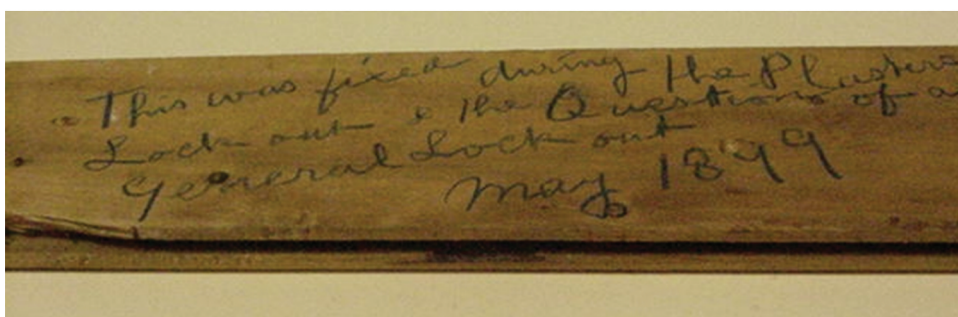 This was fixed during the Plastere
Lock out & the Questions of a
General Lock out
May 1899